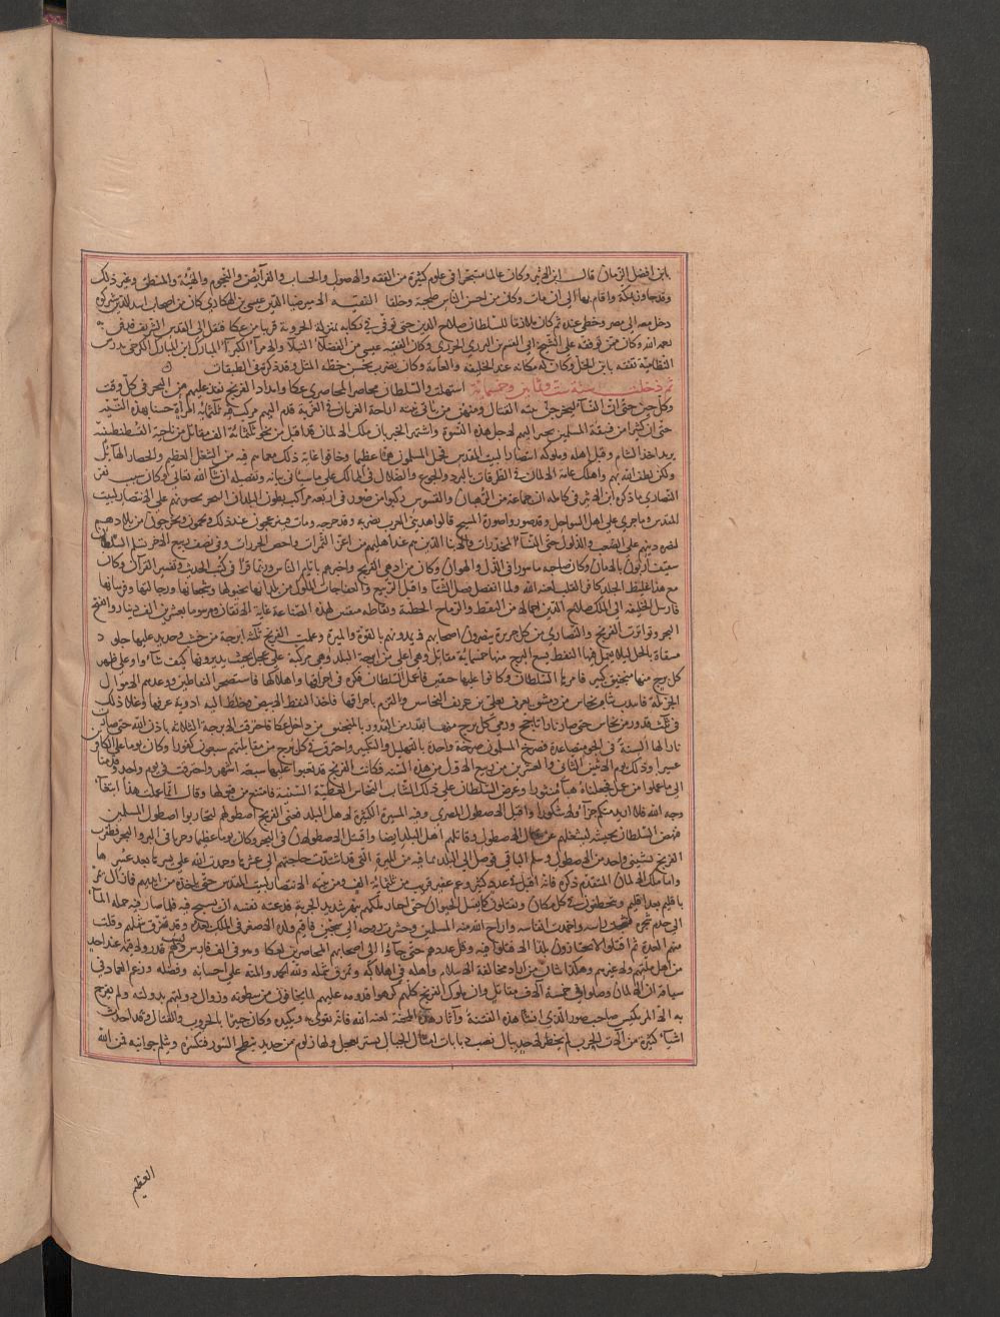 بابن افضل الزمان قال ابن الاثير وكان عالما متبحرا في علوم كثيرة من الفقه والاصول والحساب والفرائض والنجوم والهيئة والمنطق وغير ذلك
وقد جاور بمكة واقام بها الى ان مات وكان من احسن الناس صحبة وخلقا الفقيه الامير ضيا الدين عيسى بن الهكاري كان من اصحاب اسد الدين شيركوه
دخل معه الى مصر وحظي عنده ثم كان ملازما للسلطان صلاح الدين حتى توفي في ركابه بمنزلة الخروبة قريبا من عكا فنقل الى القدس الشريف فدفن به
رحمه الله وكان ممن تفقه على الشيخ ابي القسم بن البزري الجزري وكان الفقيه عيسى من الفضلا النبلا والامرا الكبرا المبارك ابن المبارك الكرخي مدرس
النظامية تفقه بابن الخل وكان له مكانة عند الخليفة والعامة وكان يضرب بحسن خطه المثل وقد ذكرته في الطبقات
ثم دخلت سنة ست وثمانين وخمسمائة استهلت والسلطان محاصر المحاصري عكا وامداد الفرنج تفد عليهم من البحر في كل وقت
وكل حين حتى ان النسآ ليخرجن بنية القتال ومنهن من تاتي بنية اراحة الغربان في الغربة قدم اليهم مركب فيه ثلثمائة امراة حسنا بهذه النية
حتى ان كثيرا من فسقة المسلمين تحيز اليهم لاجل هذه النسوة واشتهر الخبر بان ملك الالمان قد اقبل من نحو ثلثمائة الف مقاتل من ناحية القسطنطينية
يريد اخذ الشام وقتل اهله وملوكه انتصارا لبيت المقدس فحمل المسلمون هما عظيما وخافوا غاية ذلك مع ما هم فيه من الشغل العظيم والحصار الهائل
ولكن لطف الله بهم واهلك عامة الالمان في الطرقات بالبرد والجوع والضلال في المهالك على ما سياتي بيانه وتفصيله ان شآ الله تعالى وكان سبب نفر
النصارى ما ذكره ابن الاثير في كامله ان جماعة من الرهبان والقسوس ركبوا من صور في اربعة مراكب يطوفون البلدان البحر يحرضونهم على الانتصار لبيت
المقدس وما جرى على اهل السواحل وقد صوروا صورة المسيح قالوا هذا نبي العرب يضربه وقد جرحه ومات فينزعجون عند ذلك ويحمون ويخرجون من بلادهم
لنصرة دينهم على الصعب والذلول حتى النسآ المخدرات والابنا الذين هم عند اهليهم من اعز الثمرات
وكان صاحبه ماسورا في الذل والهوان وكان من ادهى الفرنج واخبرهم بايام الناس وربما قرا في كتب الحديث وتفسير القرآن وكان
مع هذا غليظ الجلد كافر القلب لعنه الله ولما انفصل فصل الشتآ واقبل الربيع
فارسل الخليفة الى الملك صلاح الدين احمالا من النفط والرماح الخطية ونفاطه
البحر وتواترت الفرنج والنصارى من كل جزيرة ينصرون اصحابهم ويمدونهم بالقوة والميرة وعملت الفرنج ثلثة ابرجة من خشب وحديد عليها جلود
مسقاة بالخل ليلا يعمل فيها النفط يسع البرج منها خمسمائة مقاتل وهي اعلى من ابرجة البلد وهي مركبة على عجل بحيث يديرونها كيف شاءوا وعلى ظهر
كل برج منها منجنيق كبير فامر السلطان
الجزيلة فانتدب شاب نحاس من دمشق يعرف بعلي بن عريف النحاسين والتزم باحراقها فاخذ النفط الابيض وخلطه اليه ادوية عرفها وغلا ذلك
في ثلث قدور من نحاس حتى صار نارا تاجج ورمى كل برج منها بقدر من القدور بالمنجنيق من داخل عكا فاحترقت الابرجة الثلاثة باذن الله حتى صارت
نارا لها السنة في الجو متصاعدة فصرخ المسلمون صرخة واحدة بالتهليل والتكبير واحترق في كل برج من مقاتلتهم سبعون كفورا وكان يوما على الكافرين
عسيرا وذلك يوم الاثنين الثاني والعشرين من ربيع الاول من هذه السنة وكانت الفرنج قد تعبوا عليها سبعة اشهر واحترقت في يوم واحد وقدمنا
الى ما عملوا من عمل فجعلناه هبآ منثورا وعرض السلطان على ذلك الشاب النحاس العطية السنية فامتنع من قبولها وقال انما عملت هذا ابتغآ
وجه الله فلا اريد منكم جزآ ولا شكورا واقبل الاصطول المصري وفيه الميرة الكثيرة لاهل البلد فعبى الفرنج اصطولهم ليحاربوا اصطول المسلمين
فنهض السلطان بجيشه ليشغلهم عن قتال الاصطول وقاتلهم اهل البلد ايضا واقتتل الاصطولان في البحر وكان يوما عظيما وحربا في البر والبحر فظفرت
الفرنج بشيني واحد من الاصطول وسلم الباقي فوصل الى البلد بما فيه من الميرة التي قد اشتدت حاجتهم الى عشرها وحمدت الله
واما ملك الالمان المتقدم ذكره فانه اقبل في عدد كثير وجم غفير قريب من ثلثمائة الف ومن نيته الانتصار لبيت المقدس حتى ياخذه من ايديهم فما زال يمر
باقليم بعد اقليم ويتخطفون في كل مكان ويقتلون كما يقتل الحيوان حتى اجاز ملكهم بنهر شديد الجرية فدعته نفسه ان يسبح فيه فلما صار فيه حمله المآ
الى جذم شجرة فشجت راسه واخمدت انفاسه واراح الله منه المسلمين وحشرت روحه الى سجين فاقيم ولده الاصغر في الملك بعده وقد تمزق شملهم وقلت
منهم العدة ثم اقبلوا لا يجتازون ببلد الا قتلوا فيه وقل عددهم حتى جآوا الى اصحابهم المحاصرين لعكا وهم في الف فارس وليس لهم قدر ولا قيمة عند احد
من اهل ملتهم ولا غيرهم وهكذا شان من اراد مخالفة الاسلام واهله في اهلاكه وتمزق شمله ولله الحمد والمنة على احسانه وفضله وزعم العماد في
سياقه ان الالمان وصلوا في خمسة آلاف مقاتل وان ملوك الفرنج كلهم كرهوا قدومه عليهم لما يخافون من سطوته وزوال دولتهم بدولته ولم يفرح
به الا المركيس صاحب صور الذي انشا هذه الفتنة وآثار هذه المحنة لعنه الله فانه تقوى به وبكيده وكان خبيرا بالحروب والقتال وقد احدث
اشيآ كثيرة من آلات الحرب لم تخطر لاحد ببال نصب دبابات امثال الجبال تسير بعجل ولها زلوم من حديد تنطح السور فتكسره وتثلم جوانبه فمن الله
العظيم